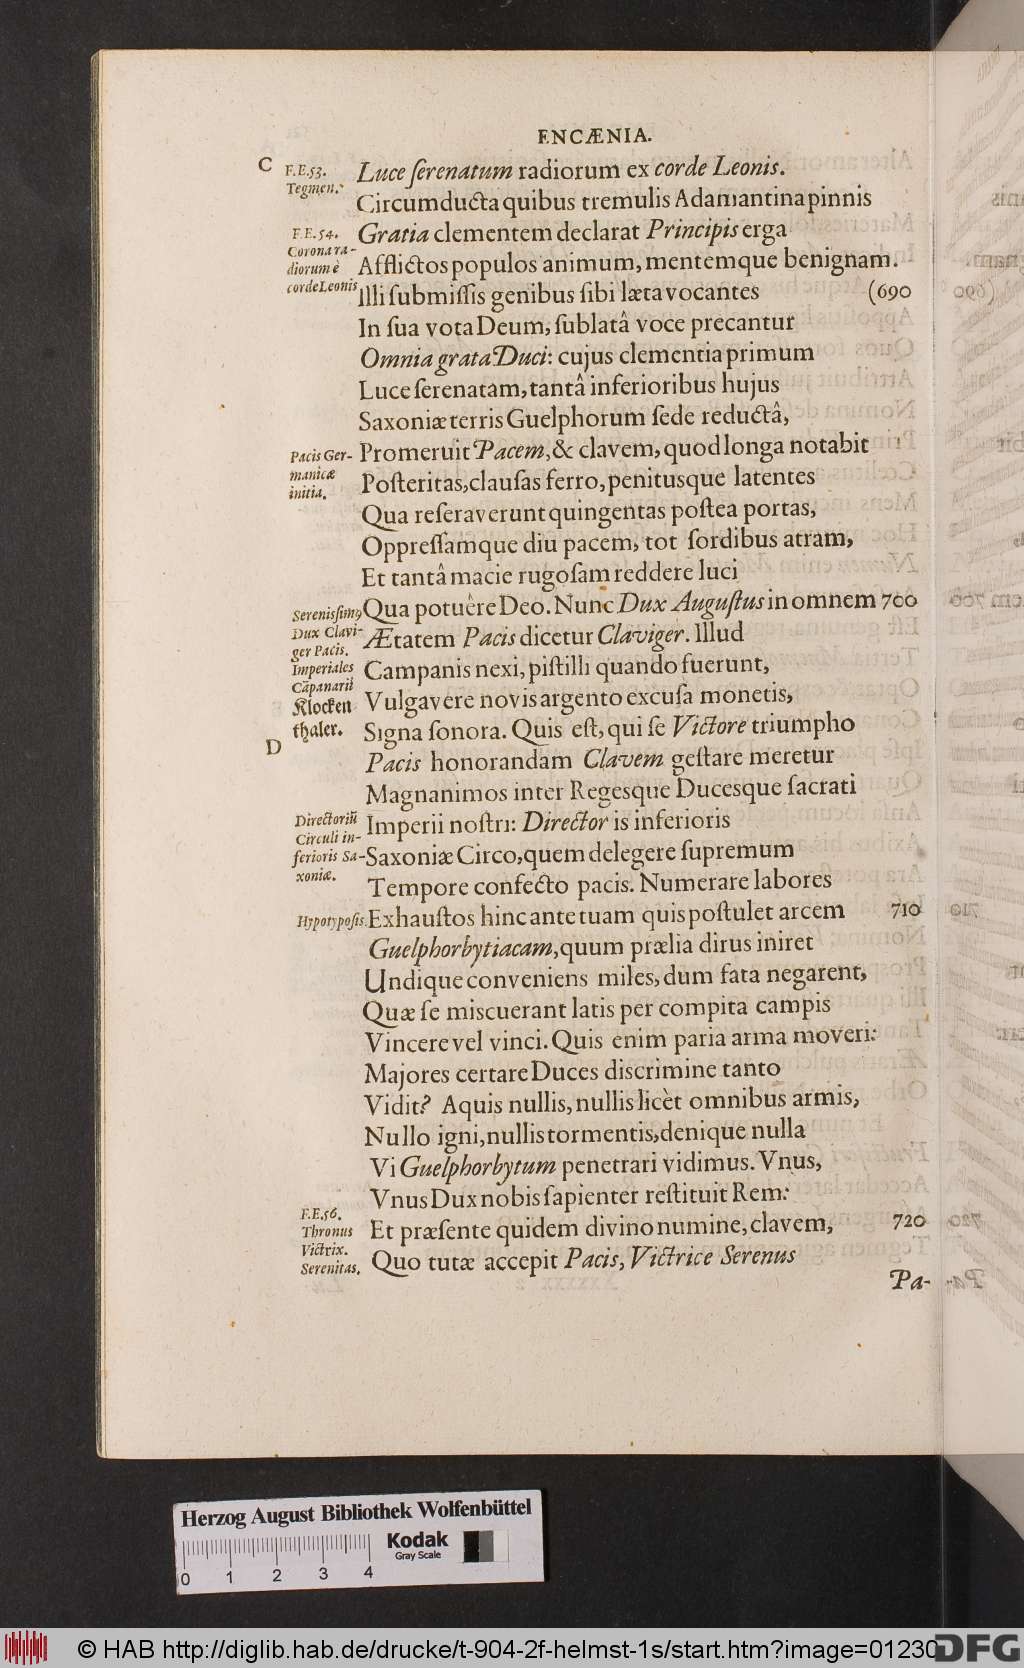 ENCÆNIA.
C
F.E.53.
Tegmen.
Luce ſerenatum radiorum ex corde Leonis.
Circumducta quibus tremulis Adamantina pinnis
F.E.54.
Corona ra-
diorum è
corde Leonis
Gratia clementem declarat Principis erga
Afflictos populos animum, mentemque benignam.
Illi ſubmiſſis genibus ſibi læta vocantes (690
In ſua vota Deum, ſublatâ voce precantur
Omnia grata Duci: cujus clementia primum
Luce ſerenatam, tantâ inferioribus hujus
Saxoniæ terris Guelphorum ſede reductâ,
Pacis Ger-
manicæ
initia.
Promeruit Pacem, & clavem, quod longa notabit
Poſteritas, clauſas ferro, penitusque latentes
Qua reſeraverunt quingentas poſtea portas,
Oppreſſamque diu pacem, tot ſordibus atram,
Et tantâ macie rugoſam reddere luci
Sereniſſimꝰ
Dux Clavi-
ger Pacis.
Imperiales
Cāpanarii
Klocken
thaler.
Qua potuêre Deo. Nunc Dux Auguſtus in omnem 700
Ætatem Pacis dicetur Claviger. Illud
Campanis nexi, piſtilli quando fuerunt,
Vulgavere novis argento excuſa monetis,
Signa ſonora. Quis eſt, qui ſe Victore triumpho
D
Pacis honorandam Clavem geſtare meretur
Magnanimos inter Regesque Ducesque ſacrati
Directoriū
Circuli in-
ferioris Sa-
xoniæ.
Imperii noſtri: Director is inferioris
Saxoniæ Circo, quem delegere ſupremum
Tempore confecto pacis. Numerare labores
Hypotypoſis.
Exhauſtos hinc ante tuam quis poſtulet arcem 710
Guelphorbytiacam, quum prælia dirus iniret
Undique conveniens miles, dum fata negarent,
Quæ ſe miscuerant latis per compita campis
Vincere vel vinci. Quis enim paria arma moveri:
Majores certare Duces discrimine tanto
Vidit? Aquis nullis, nullis licèt omnibus armis,
Nullo igni, nullis tormentis, denique nulla
Vi Guelphorbytum penetrari vidimus. Vnus,
Vnus Dux nobis ſapienter reſtituit Rem:
F.E.56.
Thronus
Victrix.
Serenitas.
Et præſente quidem divino numine, clavem, 720
Quo tutæ accepit Pacis, Victrice Serenus
Pa-
Herzog August Bibliothek Wolfenbüttel
Kodak
Gray Scale
0 1 2 3 4
© HAB http://diglib.hab.de/drucke/t-904-2f-helmst-1s/start.htm?image=01230
DFG